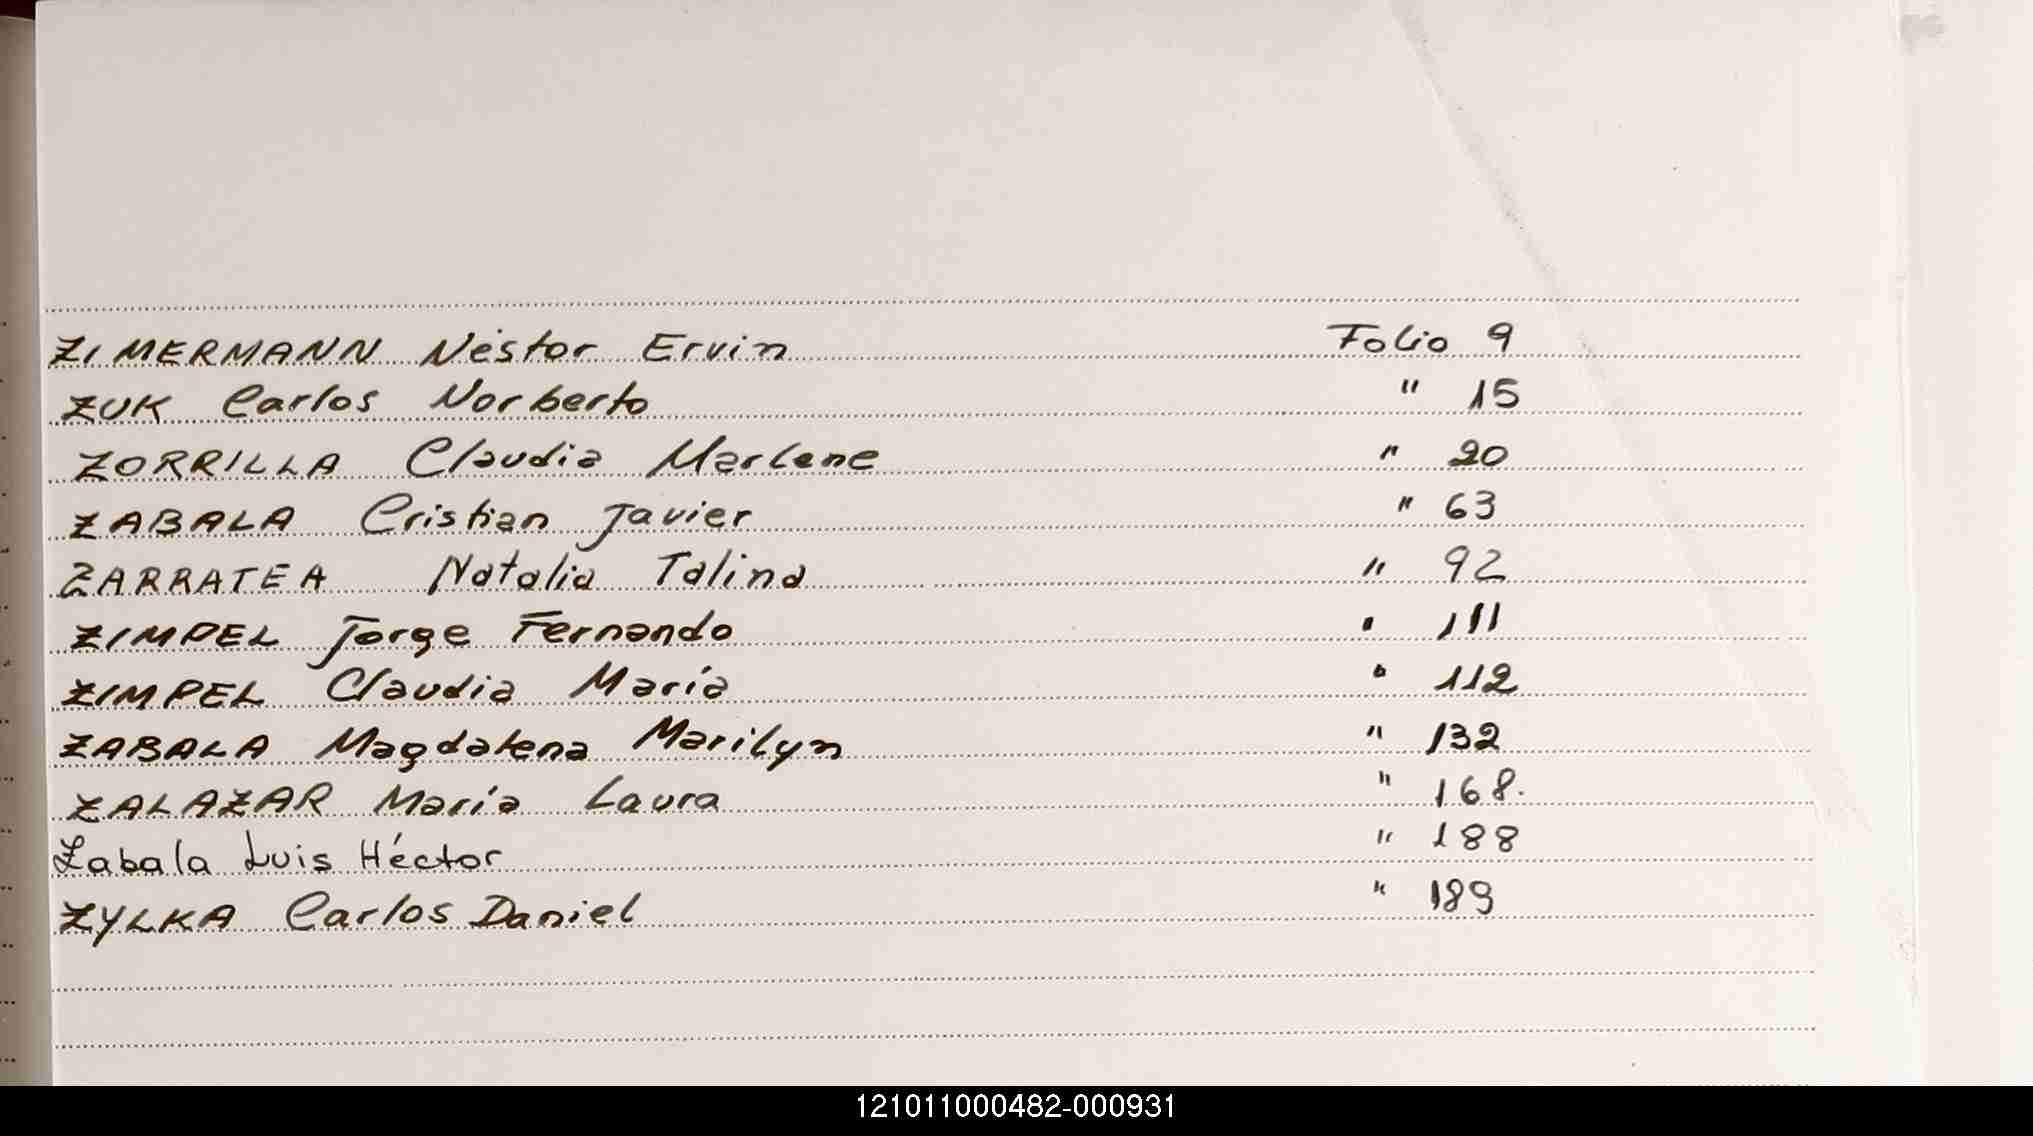 ZIMERMANN Néstor Ervin Folio 9
ZUK Carlos Norberto " 15
ZORRILLA Claudia Marlene " 20
ZABALA Cristian Javier " 63
ZARRATEA Natalia Talina " 92
ZIMPEL Jorge Fernando " 111
ZIMPEL Claudia María " 112
ZABALA Magdalena Marilyn " 132
ZALAZAR María Laura " 168.
Zabala Luis Héctor " 188
ZYLKA Carlos Daniel " 189
121011000482-000931